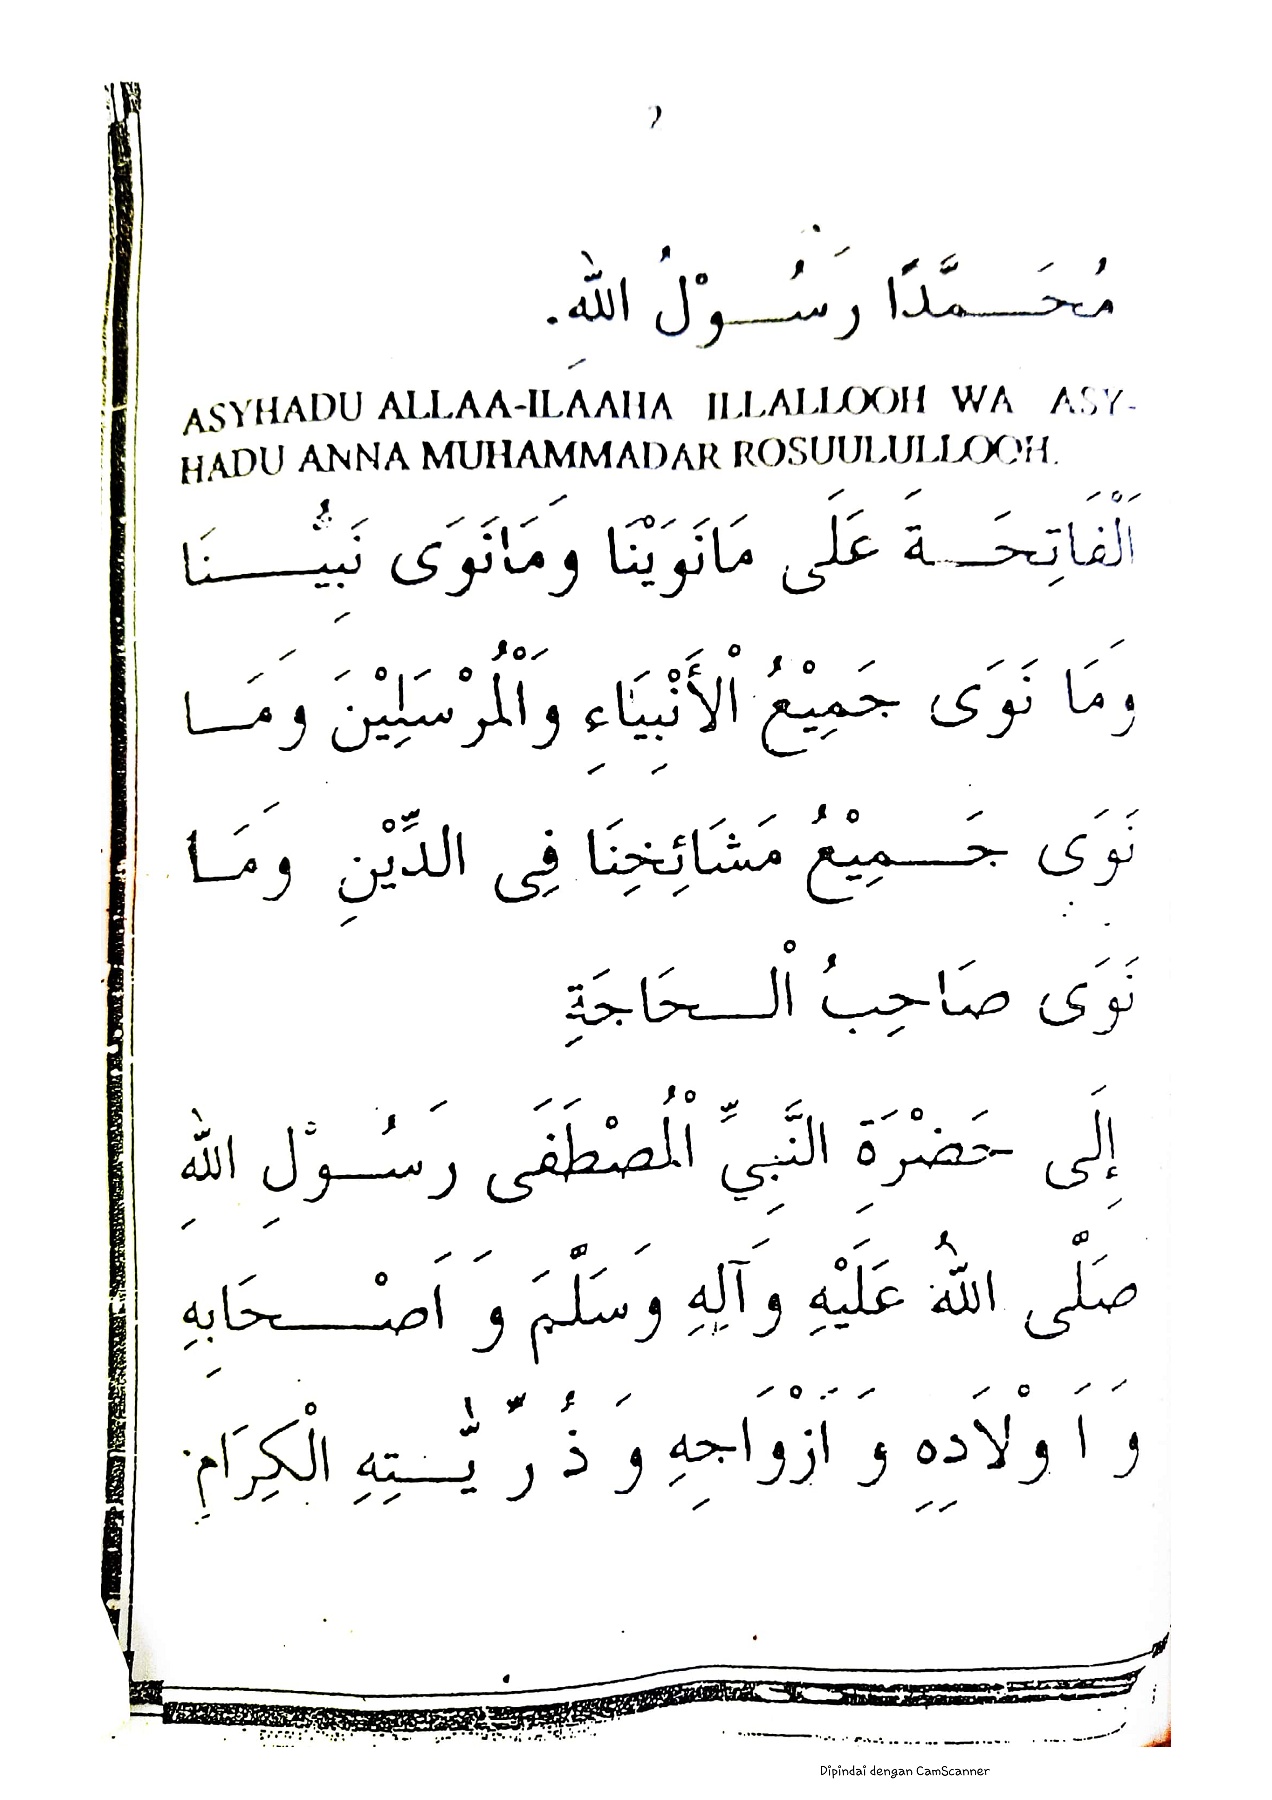 2
مُحَمَّدًا رَسُوْلُ اللهِ.
ASYHADU ALLAA-ILAAHA ILLALLOOH WA ASY-
HADU ANNA MUHAMMADAR ROSUULULLOOH.
اَلْفَاتِحَةَ عَلَى مَانَوَيْنَا وَمَانَوَى نَبِيُّنَا
وَمَا نَوَى جَمِيْعُ اْلأَنْبِيَاءِ وَاْلمُرْسَلِيْنَ وَمَا
نَوَى جَمِيْعُ مَشَائِخِنَا فِى الدِّيْنِ وَمَا
نَوَى صَاحِبُ اْلحَاجَةِ
إِلَى حَضْرَةِ النَّبِيِّ اْلمُصْطَفَى رَسُوْلِ اللهِ
صَلَّى اللهُ عَلَيْهِ وَآلِهِ وَسَلَّمَ وَ اَصْحَابِهِ
وَ اَوْلَادِهِ وَ اَزْوَاجِهِ وَ ذُرِّيَّتِهِ الْكِرَامِ
Dipindai dengan CamScanner